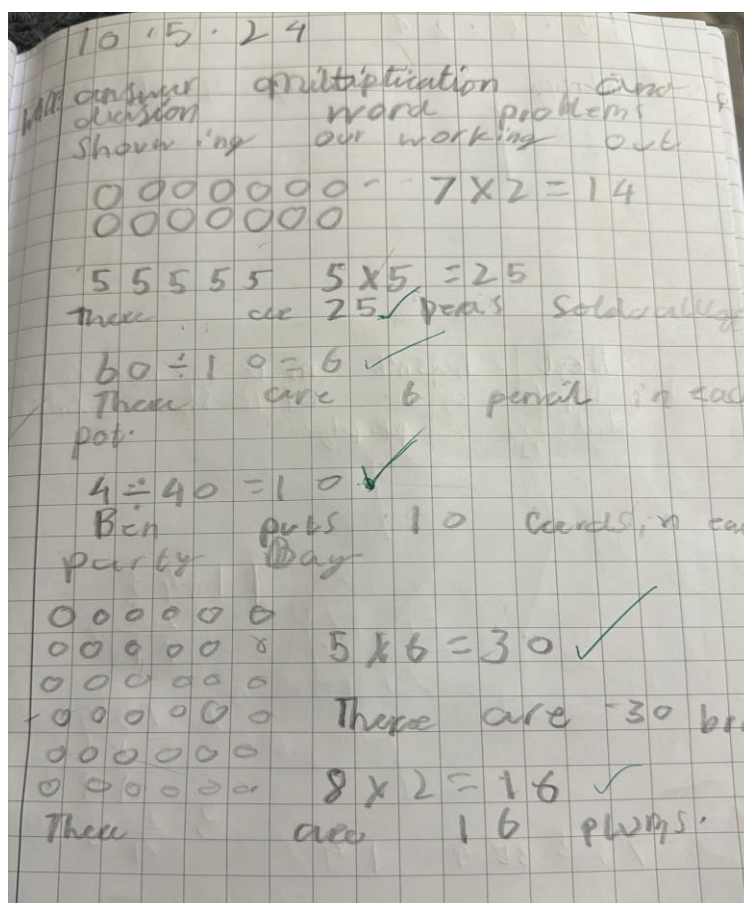 10.5.24
answer multiplication and
division word problems
showing our working out
0000000 7 X 2 = 14
0000000
5 5 5 5 5 5 X 5 = 25
There are 25 pens sold
60 ÷ 10 = 6
There are 6 pencil in eac
pot.
4 ÷ 40 = 10
Ben puts 10 Cards in ea
party Bag
000000
000000 5 X 6 = 30
000000
000000 There are 30 br
000000
000000 8 X 2 = 16
There are 16 plums.